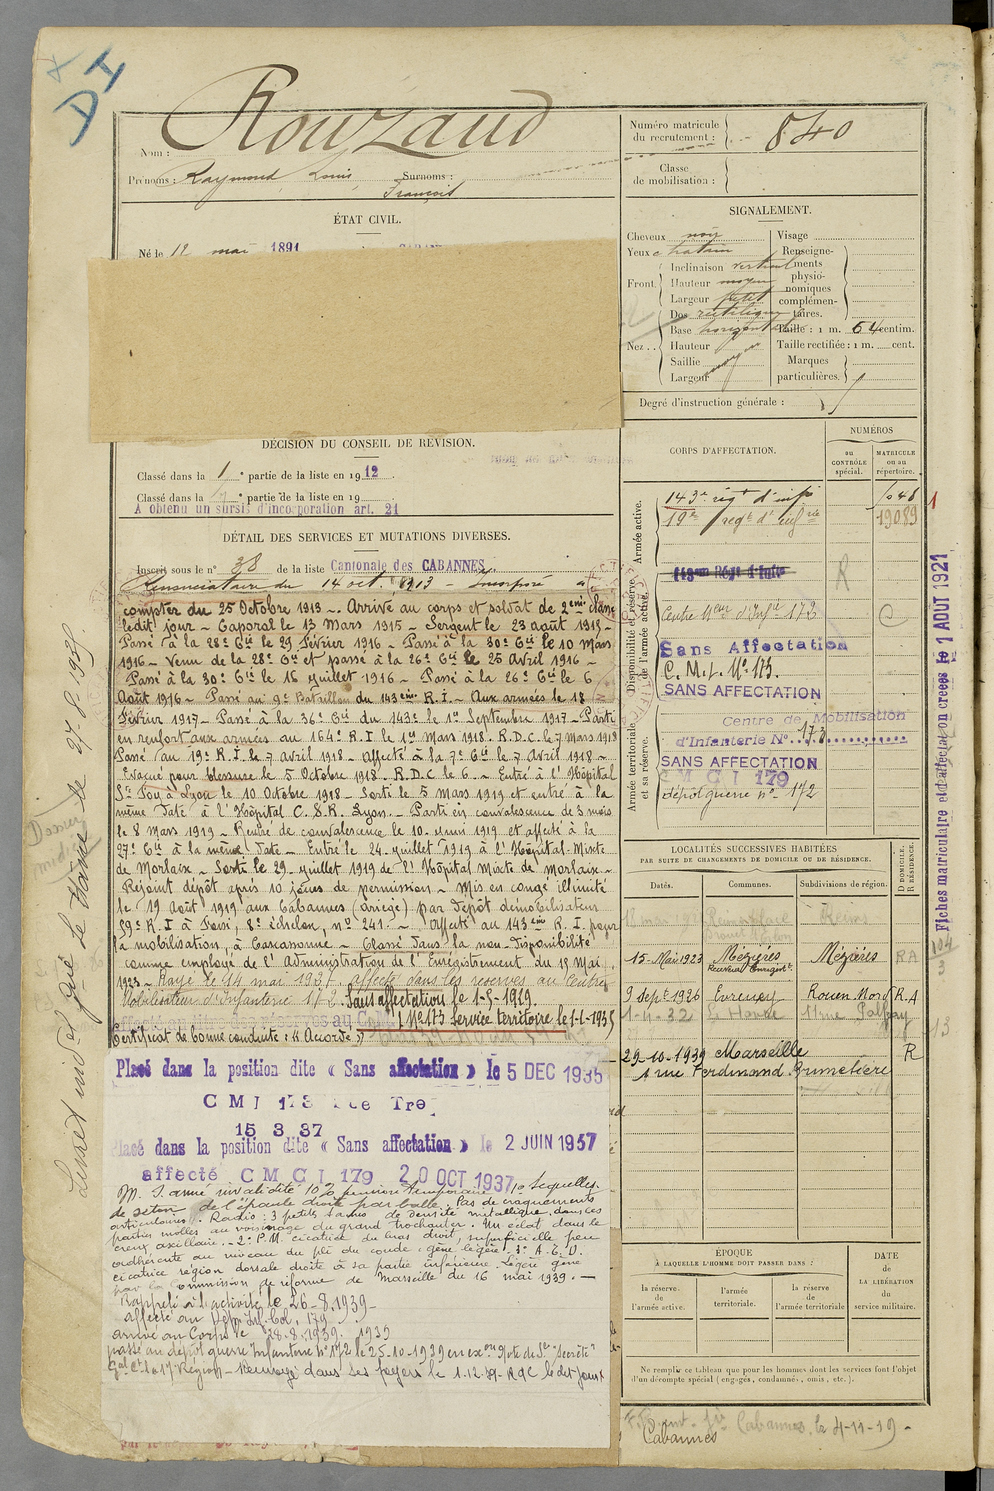 DI
Rouzaud
Nom :
Prénoms : Raymond Louis Surnoms :
François
ÉTAT CIVIL.
Né le 12 mai 1891
DÉCISION DU CONSEIL DE RÉVISION.
Classé dans la 1 e partie de la liste en 1912.
Classé dans la e partie de la liste en 19
A obtenu un sursis d'incorporation art. 21
DÉTAIL DES SERVICES ET MUTATIONS DIVERSES.
Inscrit sous le n° 38 de la liste Cantonale des CABANNES
Renonciataire du 14 oct. 1913 – Incorporé à
compter du 25 Octobre 1913 ~. Arrivé au corps et soldat de 2ème classe
ledit jour ~ Caporal le 13 Mars 1915 ~ Sergent le 23 août 1915 ~
Passé à la 28e Cie le 29 Février 1916 ~ Passé à la 30e Cie le 10 Mars
1916 ~ Venu de la 28e Cie et passé à la 26e Cie le 25 Avril 1916 ~
Passé à la 30e Cie le 16 juillet 1916 ~ Passé à la 26e Cie le 6
Août 1916 ~ Passé au 9e Bataillon du 143ème R.I. ~ Aux armées le 18
Février 1917 ~ Passé à la 36e Cie du 143e le 1er Septembre 1917 ~ Parti
en renfort aux armées au 164e R.I le 1er Mars 1918. R.D.C. le 7 Mars 1918
Passé au 19e R.I. le 7 avril 1918 ~ affecté à la 7e Cie le 7 Avril 1918 ~
Évacué pour blessure le 5 Octobre 1918. R.D.C le 6. ~ Entré à l'Hôpital
Ste Foy à Lyon le 10 Octobre 1918 ~ Sorti le 5 Mars 1919 et entré à la
même date à l'Hôpital C.S.R. Lyon. ~ Parti en convalescence de 3 mois
le 8 Mars 1919 ~ Rentré de convalescence le 10 Juin 1919 et affecté à la
27e Cie à la même date ~ Entré le 24 juillet 1919 à l'Hôpital Mixte
de Morlaix ~ Sorti le 29 juillet 1919 de l'Hôpital Mixte de Morlaix ~
Rejoint dépôt après 10 jours de permission ~ Mis en congé illimité
le 19 Août 1919 aux Cabannes (Ariège) par Dépôt démobilisateur
59e R.I à Foix, 8e échelon, n° 241. ~ Affecté au 143ème R.I. pour
la mobilisation, à Carcassonne ~ Classé dans la non-disponibilité
comme employé de l'Administration de l'Enregistrement du 15 Mai
1923 ~ Rayé le 14 mai 1927 affecté dans les réserves au Centre
Mobilisateur d'Infanterie 172. Sans affectation le 1-5-1929.
N° 173 service territoire le 1-1-1935
Certificat de bonne conduite : "Accordé"
Placé dans la position dite « Sans affectation » le 5 DEC 1935
15 3 37
Placé dans la position dite « Sans affectation » le 2 JUIN 1937
affecté C M G I 179 20 OCT 1937
invalidité 10% pension temporaire 1° Sequelles
de séton de l'épaule droite par balle. Pas de craquements
articulaires. Radio : 3 petits de densité métallique dans les
parties molles au voisinage du grand trochanter. Un éclat dans le
creux axillaire. – 2° P.M. cicatrice du bras droit, superficielle peu
adhérente au niveau du pli du coude, gêne légère 3° A.E.D.
cicatrice région dorsale droite à sa partie inférieure. Légère gêne
par la Commission de réforme de Marseille du 16 mai 1939. —
Rappelé à l'activité le 26-8-1939 –
affecté au Dépôt Inf. Col. 179
arrivé au Corps le 28.8.1939. 1939
passé au dépôt guerre Infanterie n° 172 le 25-10-1939 en ex. Note de Sce "Secrète"
Renvoyé dans ses foyers le 1-12-39 – RdC le dit jour
Numéro matricule
du recrutement :
840
Classe
de mobilisation :
SIGNALEMENT.
Cheveux noir
Yeux chatain
Front.
Inclinaison vertical
Hauteur moyen
Largeur petit
Nez ..
Dos rectiligne
Base horizontal
Hauteur
Saillie
Largeur
Visage
Renseigne-
ments
physio-
nomiques
complémen-
taires.
Taille : 1 m. 64 centim.
Taille rectifiée : 1 m. cent.
Marques
particulières.
Degré d'instruction générale :
CORPS D'AFFECTATION.
NUMÉROS
au
CONTRÔLE
spécial.
MATRICULE
ou au
répertoire.
Armée active.
143e régt d'infie
19e régt d'infrie
19089
Disponibilité et réserve
de l'armée active.
143eme Régt d'Infie
R
Centre Meur d'Infie 173
C
Sans Affectation
C.M.I. N° 173.
SANS AFFECTATION
Armée territoriale
et sa réserve.
Centre de Mobilisation
d'Infanterie N° 173
SANS AFFECTATION
C M G I 179
dépôt guerre n° 172
LOCALITÉS SUCCESSIVES HABITÉES
PAR SUITE DE CHANGEMENTS DE DOMICILE OU DE RÉSIDENCE.
Dates.
Communes.
Subdivisions de région.
D DOMICILE.
R RÉSIDENCE.
Reims
15 Mai 1923 Mézières Mézières RA
Receveur Enregistt.
9 Septe 1926 Evrecy Rouen Nord R.A
1-11-32 Le Havre
29-10-1939 Marseille R
1 rue Ferdinand Brunetière
ÉPOQUE
À LAQUELLE L'HOMME DOIT PASSER DANS :
la réserve
de
l'armée active.
l'armée
territoriale.
la réserve
de
l'armée territoriale
DATE
de
LA LIBÉRATION
du
service militaire.
Ne remplir ce tableau que pour les hommes dont les services font l'objet
d'un décompte spécial (engagés, condamnés, omis, etc.).
Cabannes, le 4-11-19 –
Cabannes
Fiches matriculaire et d'affectation créées le 1 AOUT 1921